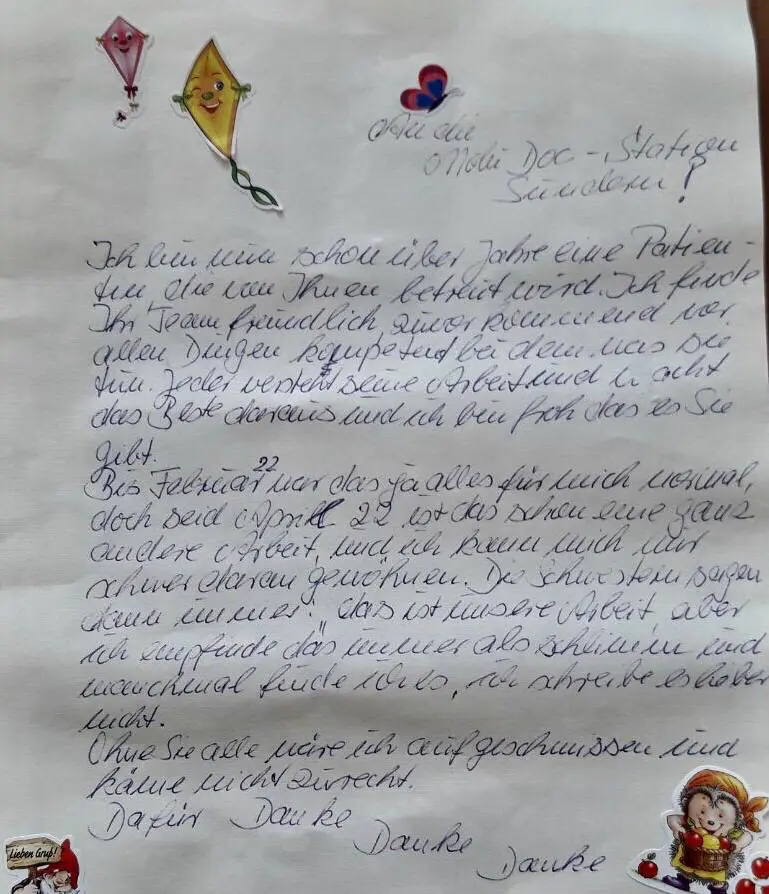 An die
Mobi Doc-Station
Sundern!
Ich bin nun schon über Jahre eine Patien-
tin, die von Ihnen betreut wird. Ich finde
Ihr Team freundlich, zuvorkommend vor
allen Dingen kompetent bei dem was Sie
tun. Jeder versteht seine Arbeit und macht
das Beste daraus und ich bin froh das es Sie
gibt.
Bis Februar 22 war das ja alles für mich normal,
doch seid April 22 ist das schon eine ganz
andere Arbeit, und ich kann mich nur
schwer daran gewöhnen. Die Schwestern sagen
dann immer: „das ist unsere Arbeit, aber
ich empfinde das immer als schlimm und
manchmal finde ich es, ich schreibe es lieber
nicht.
Ohne Sie alle wäre ich aufgeschmissen und
käme nicht zurecht.
Dafür Danke
Danke
Danke
Lieben Gruß!